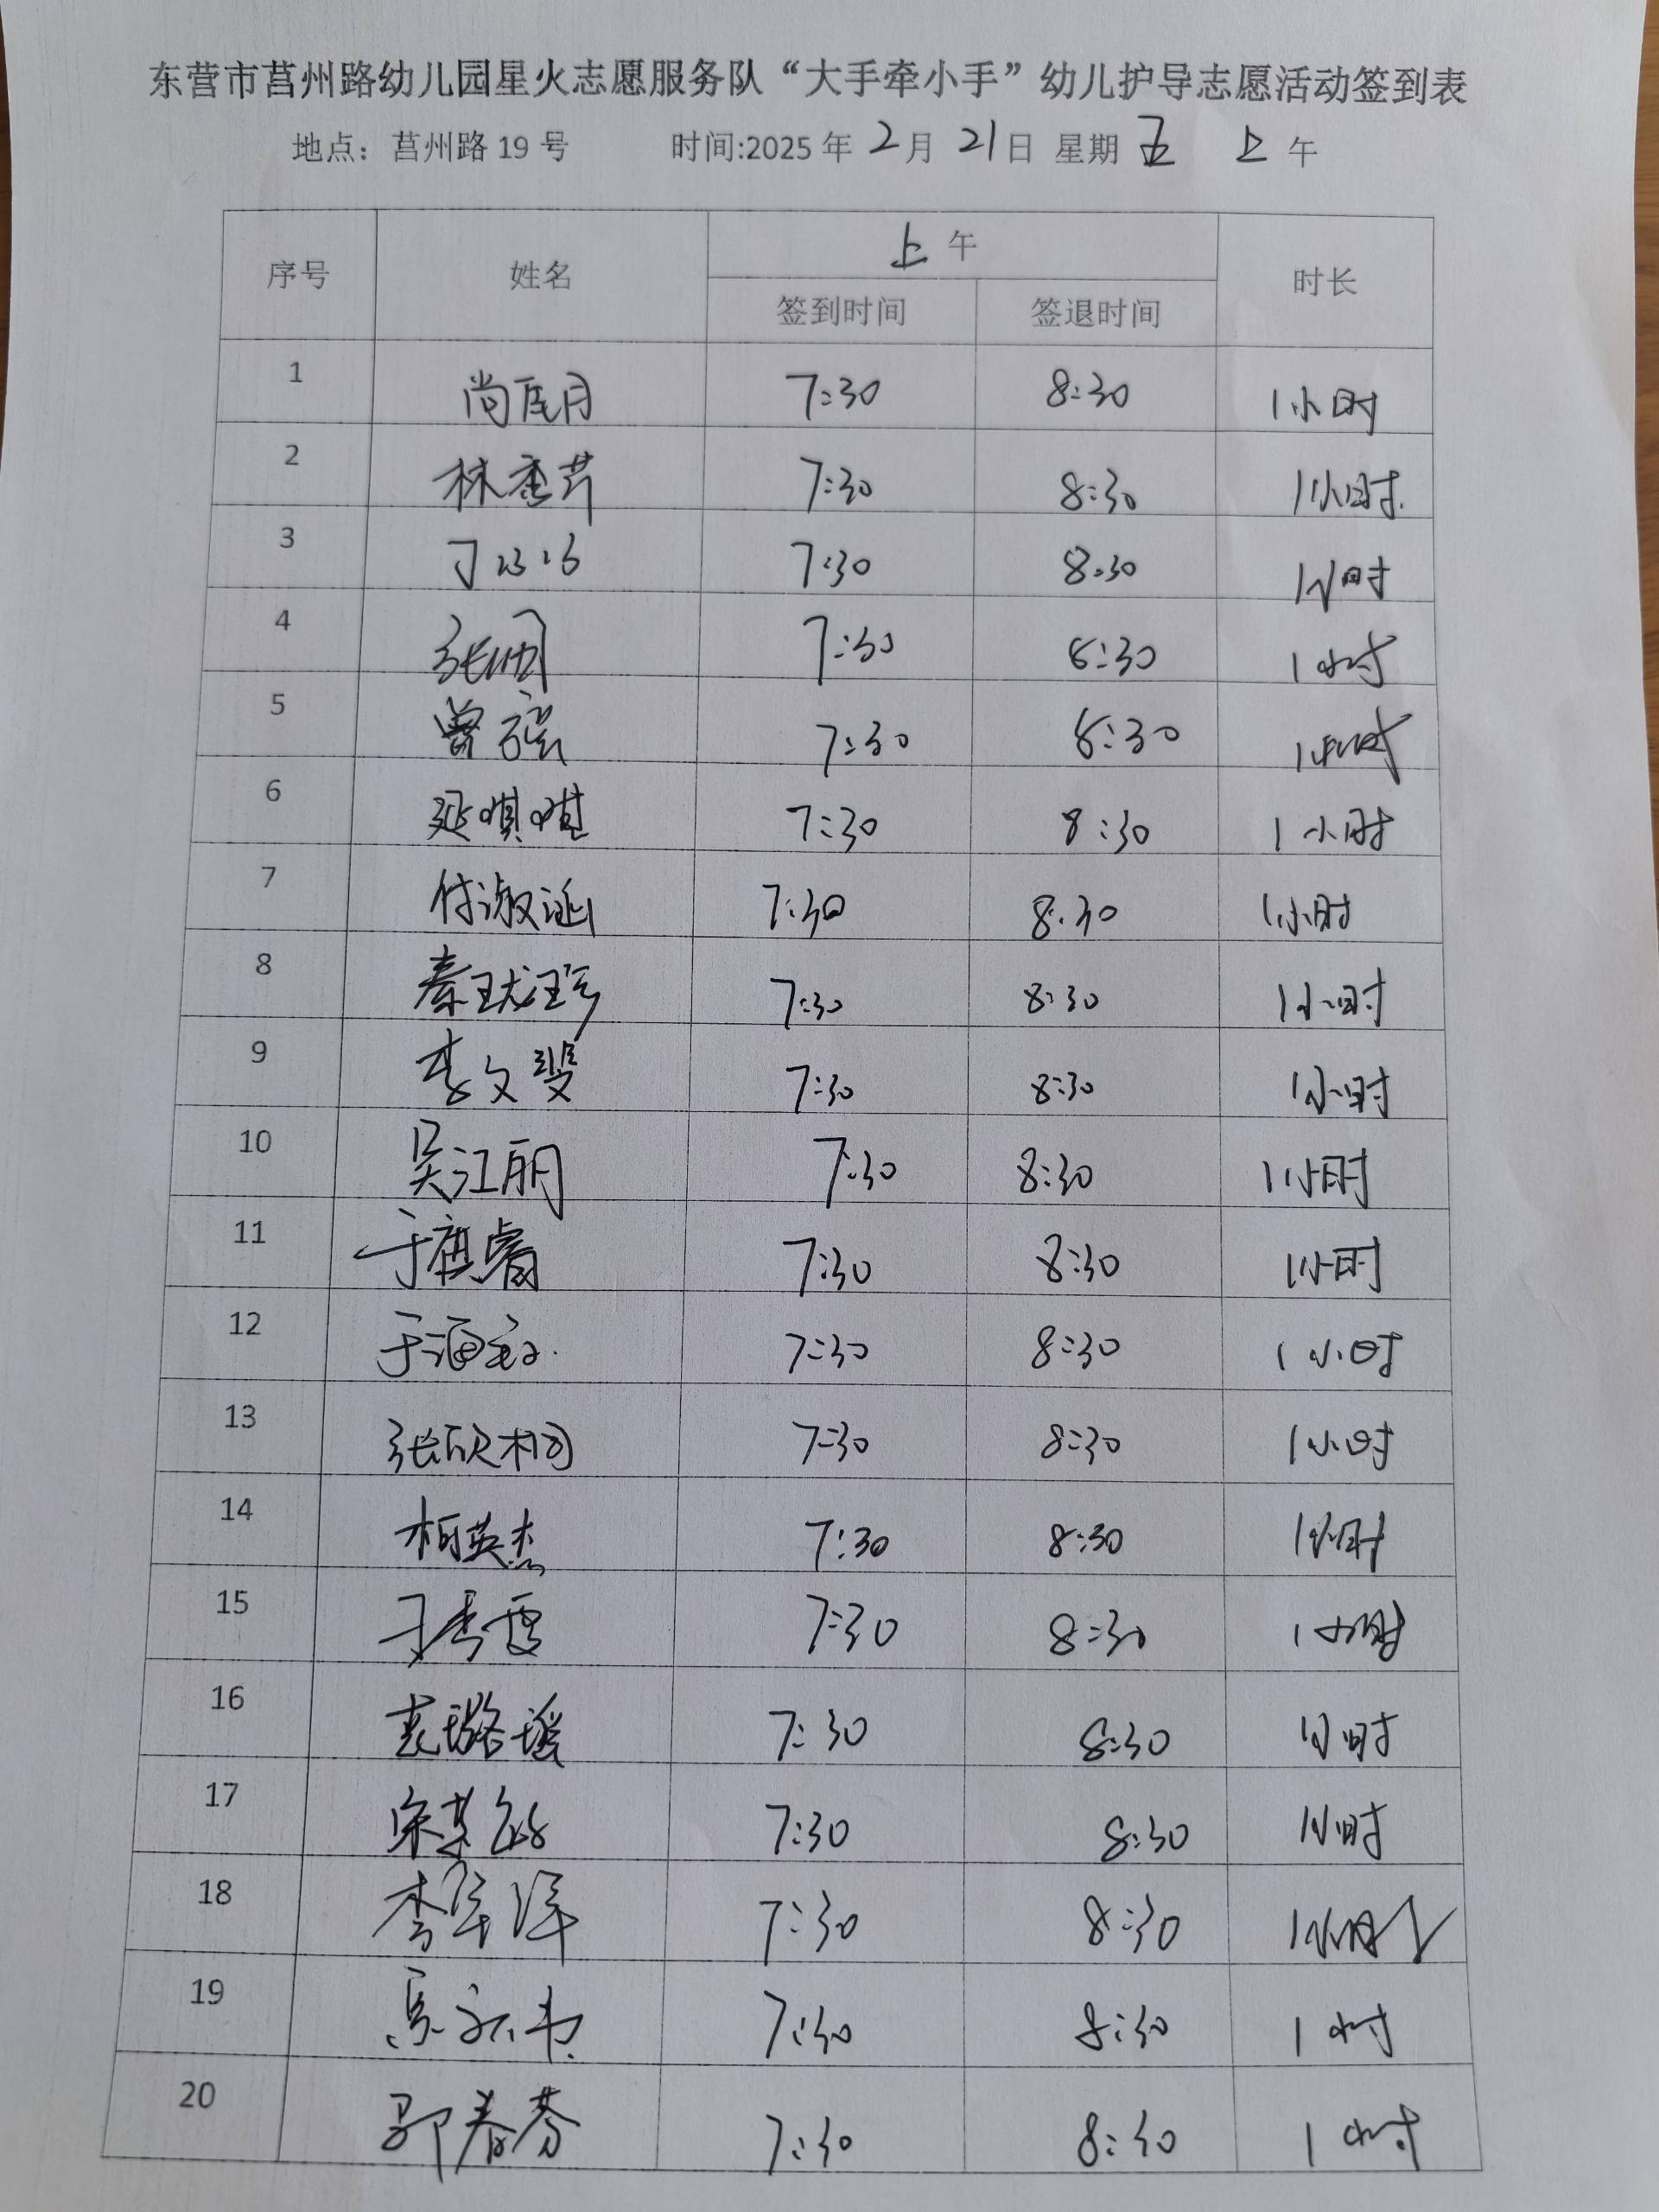 东营市莒州路幼儿园星火志愿服务队“大手牵小手”幼儿护导志愿活动签到表
地点：莒州路 19 号 时间:2025 年 2 月 21 日 星期 五 上 午
序号 姓名 上 午 时长
签到时间 签退时间
1 尚 月 7:30 8:30 1小时
2 林秀芹 7:30 8:30 1小时
3 7:30 8:30 1小时
4 张 7:30 8:30 1小时
5 曾 7:30 8:30 1小时
6 延嗔嗔 7:30 8:30 1小时
7 付淑涵 7:30 8:30 1小时
8 秦珑珲 7:30 8:30 1小时
9 李文斐 7:30 8:30 1小时
10 吴江丽 7:30 8:30 1小时
11 于祺睿 7:30 8:30 1小时
12 于海 7:30 8:30 1小时
13 张欣桐 7:30 8:30 1小时
14 柏英杰 7:30 8:30 1小时
15 7:30 8:30 1小时
16 袁璐瑶 7:30 8:30 1小时
17 宋 7:30 8:30 1小时
18 李 洋 7:30 8:30 1小时
19 7:30 8:30 1小时
20 郭春芬 7:30 8:30 1小时